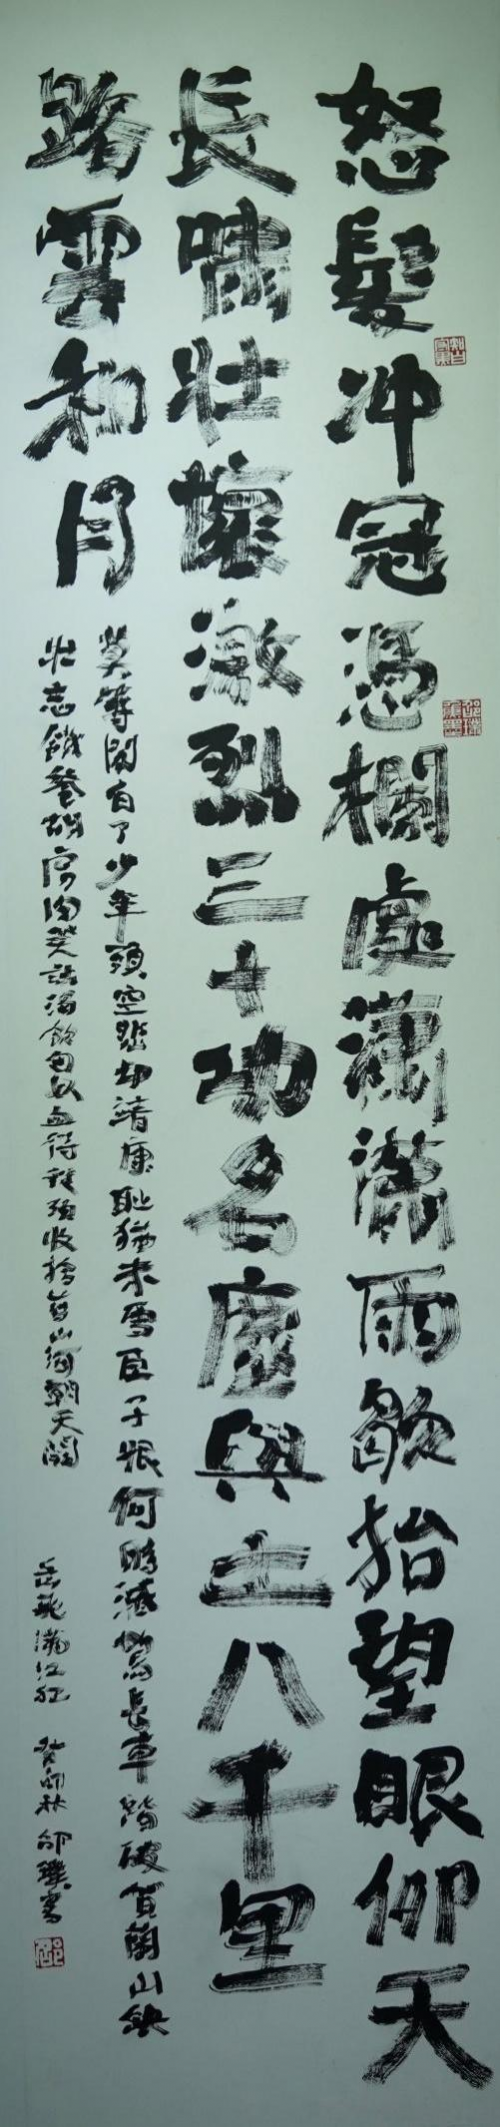 怒髮冲冠憑欄處瀟瀟雨歇抬望眼仰天
長嘯壯懷激烈三十功名塵與土八千里
路雲和月
莫等閒白了少年頭空悲切靖康耻猶未雪臣子恨何時滅駕長車踏破賀蘭山缺
壯志饑餐胡虜肉笑談渴飲匈奴血待從頭收拾舊山河朝天闕
岳飛滿江紅 癸卯秋 邵璞書